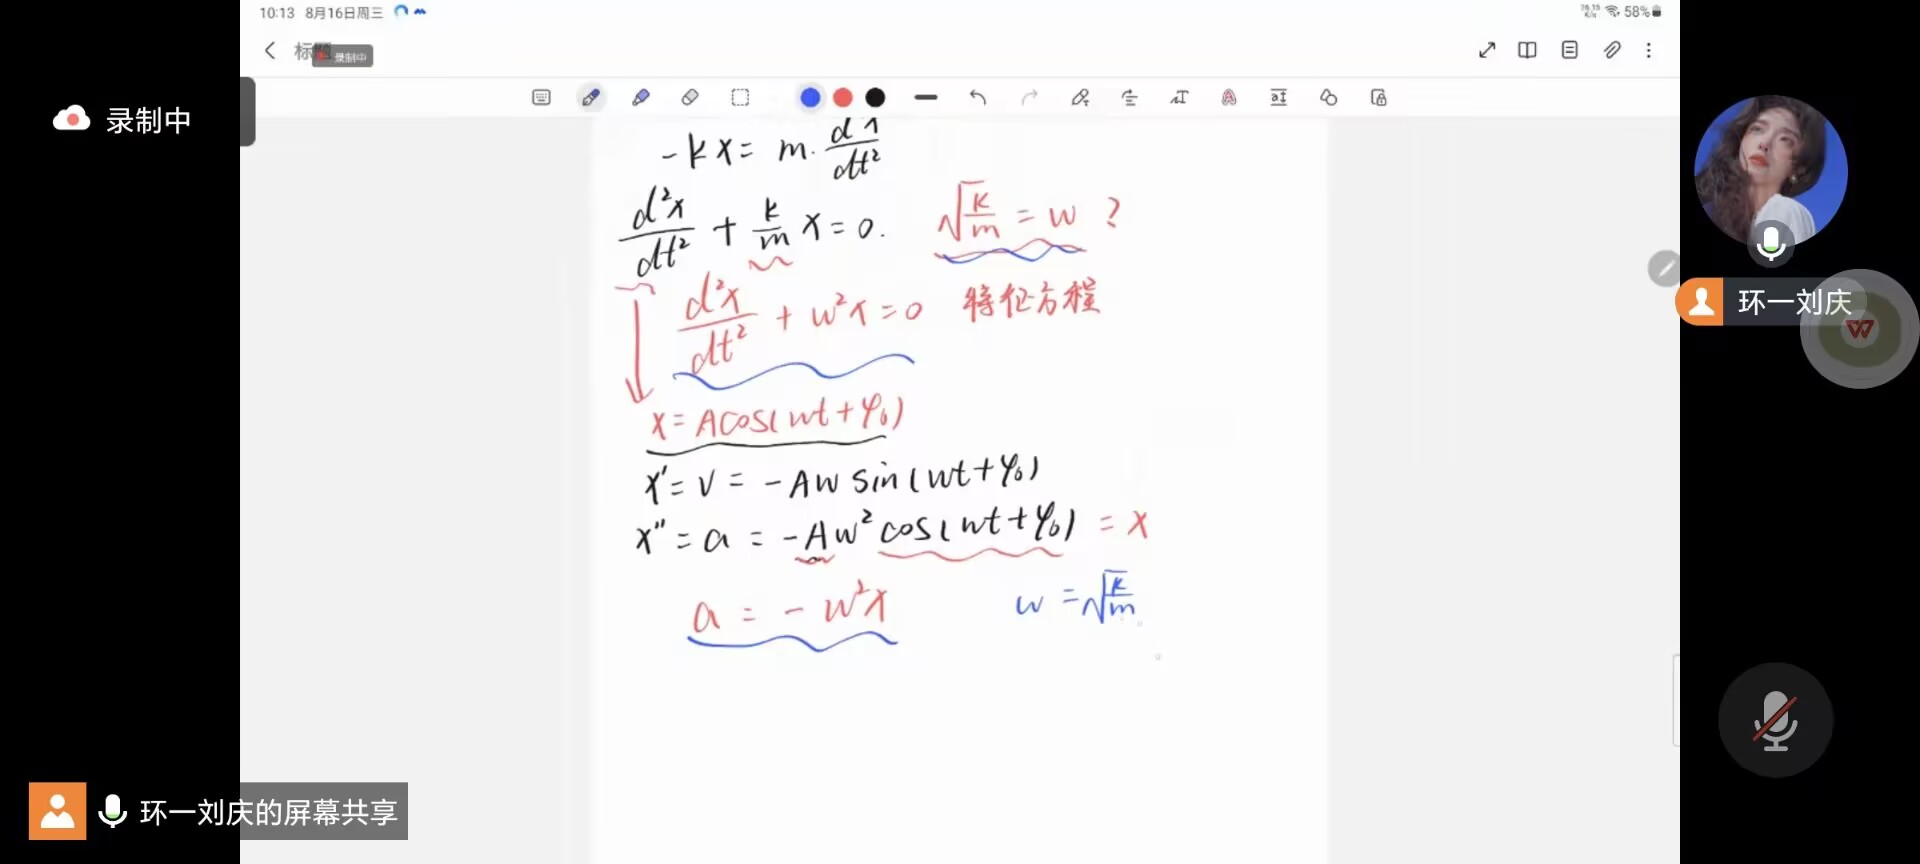 10:13 8月16日周三
58%
录制中
录制中
-kx = m·
dt²
d²x/dt² + k/m x = 0. √k/m = w ?
d²x/dt² + w²x = 0 特征方程
x = Acos(wt+φ₀)
x' = v = -Aw sin(wt+φ₀)
x'' = a = -Aw² cos(wt+φ₀) = x
a = -w²x w = √k/m
环一刘庆
环一刘庆的屏幕共享